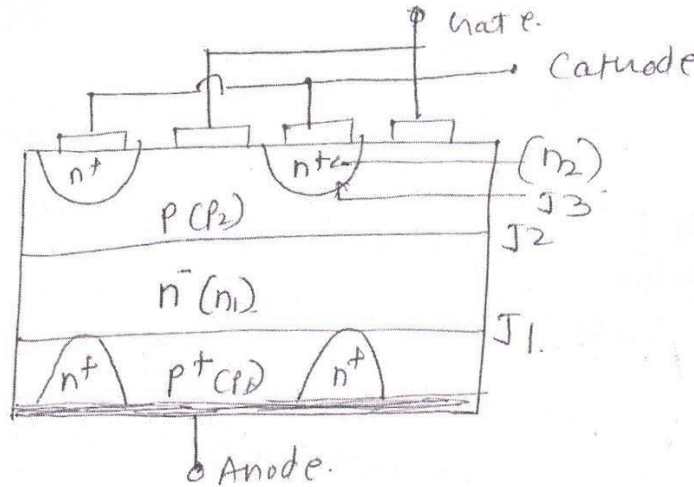 Gate.
Cathode
n+ n+ (n2)
J3
P(P2)
J2
n-(n1)
J1.
n+ p+(P1) n+
Anode.